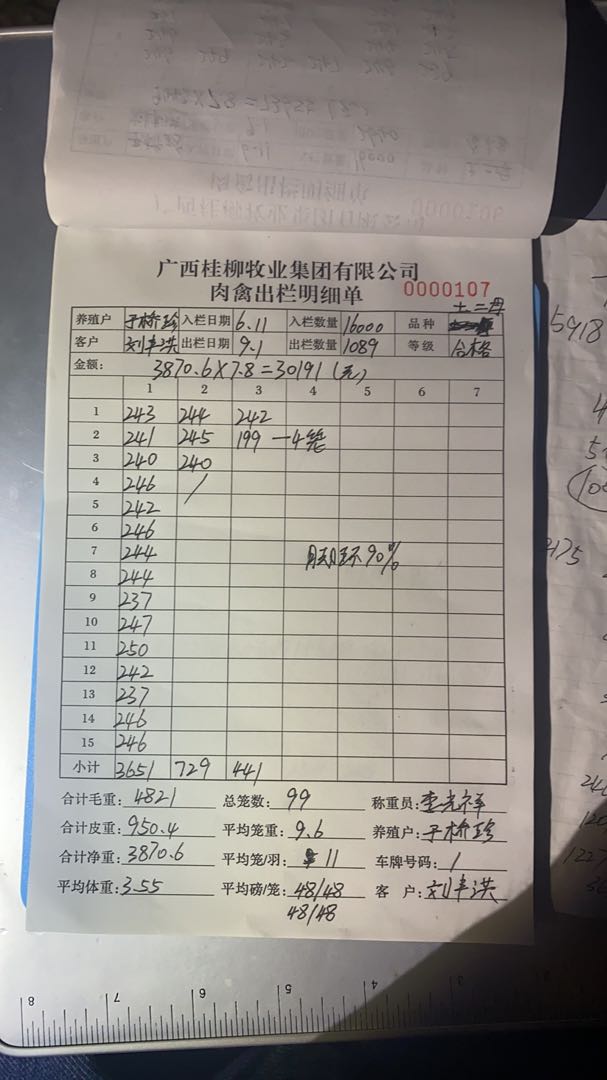 广西桂柳牧业集团有限公司
肉禽出栏明细单 0000107
土二母
养殖户 于桥珍 入栏日期 6.11 入栏数量 16000 品种
客户 刘丰洪 出栏日期 9.1 出栏数量 1089 等级 合格
金额： 3870.6×7.8=30191（元）
1 2 3 4 5 6 7
1 243 244 242
2 241 245 199 一4笼
3 240 240
4 246 /
5 242
6 246
7 244 90%
8 244
9 237
10 247
11 250
12 242
13 237
14 246
15 246
小计 3651 729 441
合计毛重：4821 总笼数：99 称重员：李光祥
合计皮重：950.4 平均笼重：9.6 养殖户：于桥珍
合计净重：3870.6 平均笼/羽：11 车牌号码：/
平均体重：3.55 平均磅/笼：48/48 客 户：刘丰洪
48/48
5918
2175
8 7 6 5 4 3